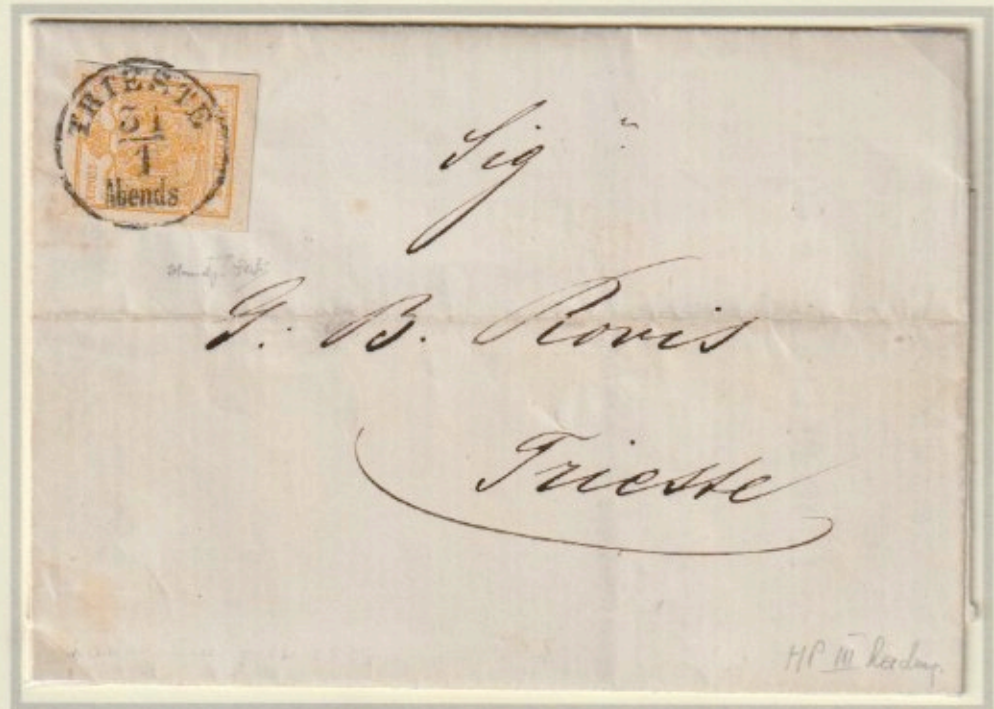 TRIESTE
31
1
Abends
Sigr
G. B. Rovis
Trieste
HP III